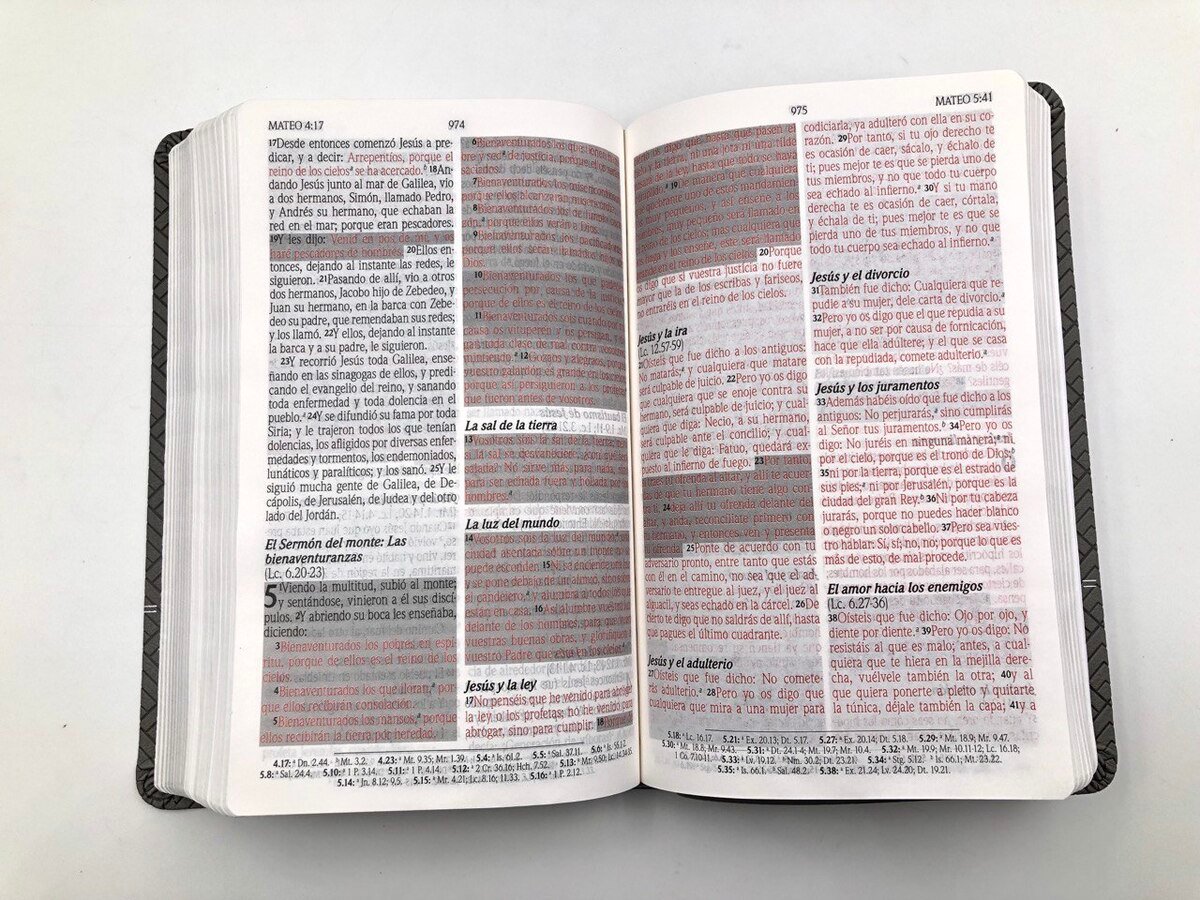 MATEO 4:17
974
17Desde entonces comenzó Jesús a pre-
dicar, y a decir: Arrepentíos, porque el
reino de los cielosª se ha acercado.ᵇ 18An-
dando Jesús junto al mar de Galilea, vio
a dos hermanos, Simón, llamado Pedro,
y Andrés su hermano, que echaban la
red en el mar; porque eran pescadores.
19Y les dijo: Venid en pos de mí, y os
haré pescadores de hombres. 20Ellos en-
tonces, dejando al instante las redes, le
siguieron. 21Pasando de allí, vio a otros
dos hermanos, Jacobo hijo de Zebedeo, y
Juan su hermano, en la barca con Zebe-
deo su padre, que remendaban sus redes;
y los llamó. 22Y ellos, dejando al instante
la barca y a su padre, le siguieron.
23Y recorrió Jesús toda Galilea, ense-
ñando en las sinagogas de ellos, y predi-
cando el evangelio del reino, y sanando
toda enfermedad y toda dolencia en el
pueblo.ª 24Y se difundió su fama por toda
Siria; y le trajeron todos los que tenían
dolencias, los afligidos por diversas enfer-
medades y tormentos, los endemoniados,
lunáticos y paralíticos; y los sanó. 25Y le
siguió mucha gente de Galilea, de De-
cápolis, de Jerusalén, de Judea y del otro
lado del Jordán.
El Sermón del monte: Las
bienaventuranzas
(Lc. 6.20-23)
5 1Viendo la multitud, subió al monte;
y sentándose, vinieron a él sus discí-
pulos. 2Y abriendo su boca les enseñaba,
diciendo:
3Bienaventurados los pobres en espí-
ritu, porque de ellos es el reino de los
cielos.
4Bienaventurados los que lloran,ª por-
que ellos recibirán consolación.
5Bienaventurados los mansos,ª porque
ellos recibirán la tierra por heredad.
6Bienaventurados los que
y sed de justicia, porque ellos
saciados.
7Bienaventurados los misericordiosos,
porque ellos alcanzarán misericordia.
8Bienaventurados los
porque ellos verán a Dios.
9Bienaventurados los pacificadores,
porque ellos serán llamados hijos de
Dios.
10Bienaventurados los que padecen
persecución por causa de la justicia,
porque de ellos es el reino de los cielos.
11Bienaventurados sois cuando por mi
causa os vituperen y os persigan, y digan
toda clase de mal contra vosotros,
mintiendo. 12Gozaos y alegraos, porque
vuestro galardón es grande en los cielos;
porque así persiguieron a los profetas
que fueron antes de vosotros.
La sal de la tierra
13Vosotros sois la sal de la tierra; pero
si la sal se desvaneciere, ¿con qué será
salada? No sirve más para nada, sino
para ser echada fuera y hollada por los
hombres.ª
La luz del mundo
14Vosotros sois la luz del mundo; una
ciudad asentada sobre un monte no se
puede esconder. 15Ni se enciende una luz
y se pone debajo de un almud, sino sobre
el candelero, y alumbra a todos los que
están en casa. 16Así alumbre vuestra luz
delante de los hombres, para que vean
vuestras buenas obras, y glorifiquen a
vuestro Padre que está en los cielos.
Jesús y la ley
17No penséis que he venido para abrogar
la ley o los profetas; no he venido para
abrogar, sino para cumplir. 18Porque
4.17: ª Dn. 2.44. ᵇ Mt. 3.2. 4.23: ª Mt. 9.35; Mr. 1.39. 5.4: ª Is. 61.2. 5.5: ª Sal. 37.11. 5.6: ª Is. 55.1-2.
5.8: ª Sal. 24.4. 5.10: ª 1 P. 3.14. 5.11: ª 1 P. 4.14. 5.12: ª 2 Cr. 36.16; Hch. 7.52. 5.13: ª Mr. 9.50; Lc. 14.34-35.
5.14: ª Jn. 8.12; 9.5. 5.15: ª Mr. 4.21; Lc. 8.16; 11.33. 5.16: ª 1 P. 2.12.
975
MATEO 5:41
digo que hasta que pasen el
cielo y la tierra, ni una jota ni una tilde
pasará de la ley, hasta que todo se haya
cumplido. 19De manera que cualquiera
que quebrante uno de estos mandamientos
muy pequeños, y así enseñe a los
hombres, muy pequeño será llamado en
el reino de los cielos; mas cualquiera que
los haga y los enseñe, éste será llamado
grande en el reino de los cielos. 20Porque
os digo que si vuestra justicia no fuere
mayor que la de los escribas y fariseos,
no entraréis en el reino de los cielos.
Jesús y la ira
(Lc. 12.57-59)
21Oísteis que fue dicho a los antiguos:
No matarás;ª y cualquiera que matare
será culpable de juicio. 22Pero yo os digo
que cualquiera que se enoje contra su
hermano, será culpable de juicio; y cual-
quiera que diga: Necio, a su hermano,
será culpable ante el concilio; y cual-
quiera que le diga: Fatuo, quedará ex-
puesto al infierno de fuego. 23Por tanto,
si traes tu ofrenda al altar, y allí te acuer-
das de que tu hermano tiene algo contra
ti, 24deja allí tu ofrenda delante del
altar, y anda, reconcíliate primero con
tu hermano, y entonces ven y presenta
tu ofrenda. 25Ponte de acuerdo con tu
adversario pronto, entre tanto que estás
con él en el camino, no sea que el ad-
versario te entregue al juez, y el juez al
alguacil, y seas echado en la cárcel. 26De
cierto te digo que no saldrás de allí, hasta
que pagues el último cuadrante.
Jesús y el adulterio
27Oísteis que fue dicho: No comete-
rás adulterio.ª 28Pero yo os digo que
cualquiera que mira a una mujer para
codiciarla, ya adulteró con ella en su co-
razón. 29Por tanto, si tu ojo derecho te
es ocasión de caer, sácalo, y échalo de
ti; pues mejor te es que se pierda uno de
tus miembros, y no que todo tu cuerpo
sea echado al infierno.ª 30Y si tu mano
derecha te es ocasión de caer, córtala,
y échala de ti; pues mejor te es que se
pierda uno de tus miembros, y no que
todo tu cuerpo sea echado al infierno.ª
Jesús y el divorcio
31También fue dicho: Cualquiera que re-
pudie a su mujer, dele carta de divorcio.ª
32Pero yo os digo que el que repudia a su
mujer, a no ser por causa de fornicación,
hace que ella adultere; y el que se casa
con la repudiada, comete adulterio.ª
Jesús y los juramentos
33Además habéis oído que fue dicho a los
antiguos: No perjurarás,ª sino cumplirás
al Señor tus juramentos.ᵇ 34Pero yo os
digo: No juréis en ninguna manera;ª ni
por el cielo, porque es el trono de Dios;ᵇ
35ni por la tierra, porque es el estrado de
sus pies;ª ni por Jerusalén, porque es la
ciudad del gran Rey.ᵇ 36Ni por tu cabeza
jurarás, porque no puedes hacer blanco
o negro un solo cabello. 37Pero sea vues-
tro hablar: Sí, sí; no, no; porque lo que es
más de esto, de mal procede.
El amor hacia los enemigos
(Lc. 6.27-36)
38Oísteis que fue dicho: Ojo por ojo, y
diente por diente.ª 39Pero yo os digo: No
resistáis al que es malo; antes, a cual-
quiera que te hiera en la mejilla dere-
cha, vuélvele también la otra; 40y al
que quiera ponerte a pleito y quitarte
la túnica, déjale también la capa; 41y a
5.18: ª Lc. 16.17. 5.21: ª Ex. 20.13; Dt. 5.17. 5.27: ª Ex. 20.14; Dt. 5.18. 5.29: ª Mt. 18.9; Mr. 9.47.
5.30: ª Mt. 18.8; Mr. 9.43. 5.31: ª Dt. 24.1-4; Mt. 19.7; Mr. 10.4. 5.32: ª Mt. 19.9; Mr. 10.11-12; Lc. 16.18;
1 Co. 7.10-11. 5.33: ª Lv. 19.12. ᵇ Nm. 30.2; Dt. 23.21. 5.34: ª Stg. 5.12. ᵇ Is. 66.1; Mt. 23.22.
5.35: ª Is. 66.1. ᵇ Sal. 48.2. 5.38: ª Ex. 21.24; Lv. 24.20; Dt. 19.21.